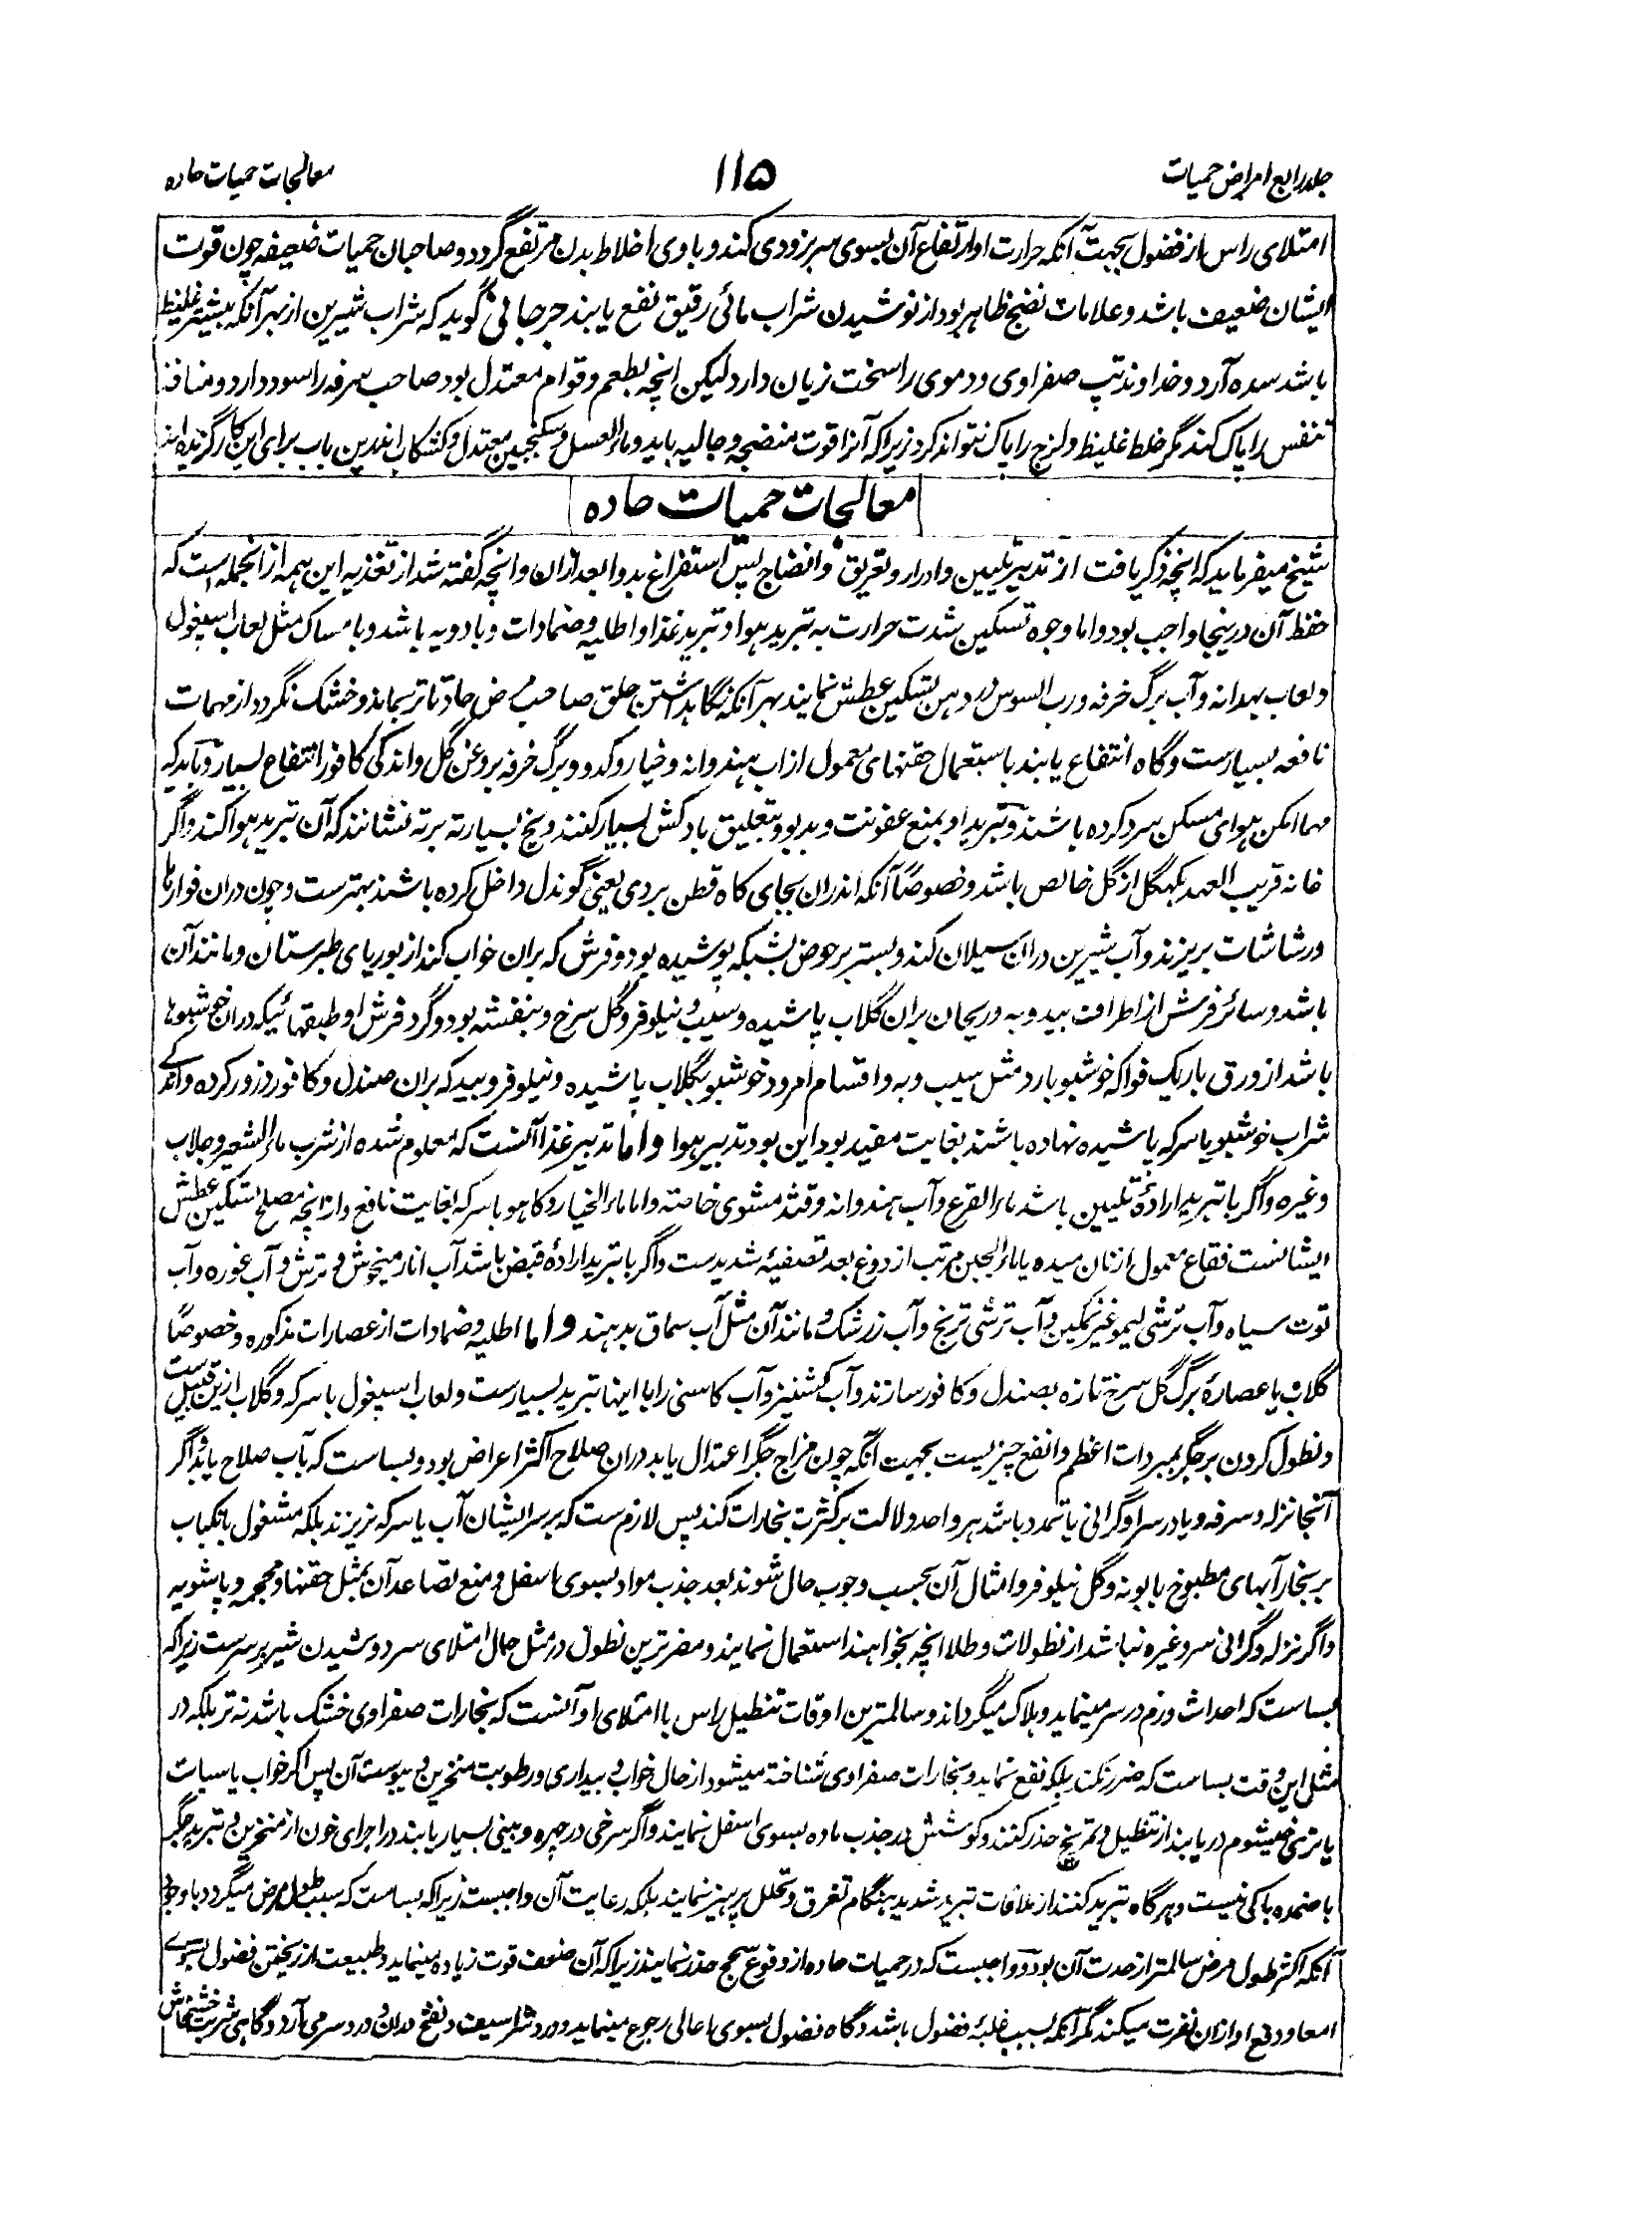 جلد رابع امراض حمیات
۱۱۵
معالجات حمیات حاده
امتلای راس از فضول بجهت آنکه حرارت او ارتفاع آن بسوی سر بزودی کند و با وی اخلاط بدن مرتفع گردد و صاحبان حمیات ضعیفه چون قوت
ایشان ضعیف باشد و علامات نضج ظاهر بود از نوشیدن شراب مائی رقیق نفع یابند جرجانی گوید که شراب شیرین از بهر آنکه بیشتر غلیظ
باشد سده آرد و خداوند تپ صفراوی و دموی را سخت زیان دارد لیکن انچه بطعم و قوام معتدل بود صاحب سرفه را سود دارد و منافذ
تنفس را پاک کند مگر خلط غلیظ و لزج را پاک نتواند کرد زیرا که آنرا قوت منضجه و جالیه باید و ماء العسل و سکنجبین معتدل و کشکاب اندرین باب برای این کار گزیده اند
معالجات حمیات حاده
شیخ میفرماید که انچه ذکر یافت از تدبیر تلیین و ادرار و تعریق و انضاج پس استفراغ بدوا بعد ازان و انچه گفته شد از تغذیه این همه از انجمله است که
حفظ آن درینجا واجب بود و اما وجوه تسکین شدت حرارت به تبرید هوا و تبرید غذا و اطلیه و ضمادات و بادویه باشد و بامساک مثل لعاب اسپغول
و لعاب بهدانه و آب برگ خرفه و رب السوس در دهن تسکین عطش نمایند بهر آنکه نگاهداشتن حلق صاحب مرض حاد تا تر بماند و خشک نگردد از مهمات
نافعه بسیارست و گاه انتفاع یابند باستعمال حقنهای معمول از آب هندوانه و خیار و کدو و برگ خرفه بروغن گل و اندکی کافور انتفاع بسیار و باید که
مهما امکن هوای مسکن سرد کرده باشند و تبرید او بمنع عفونت و بدبو و بتعلیق بادکش بسیار کنند و یخ بسیار ته برته نشانند که آن تبرید هوا کند و اگر
خانه قریب العهد بکهگل از گل خالص باشد و خصوصاً آنکه اندران بجای کاه قطن بردی یعنی گوندل داخل کرده باشند بهترست و چون دران فوارها
و رشاشات بریزند و آب شیرین دران سیلان کند و بستر بر حوض بشبکه پوشیده بود و فرش که بران خواب کند از بوریای طبرستان و مانند آن
باشد و سائر فرش از اطراف بید و به و ریحان بران گلاب پاشیده و سیب و نیلوفر و گل سرخ و بنفشه بود و گرد فرش او طبقهائیکه دران خوشبوها
باشد از ورق باریک فواکه خوشبو بارد مثل سیب و به و اقسام امرود خوشبو بگلاب پاشیده و نیلوفر و بید که بران صندل و کافور ذرور کرده و اندکے
شراب خوشبو یا سرکه پاشیده نهاده باشند بغایت مفید بود این بود تدبیر هوا و اما تدبیر غذا آنست که معلوم شده از شرب ماء الشعیر و جلاب
وغیره و اگر با تبرید ارادۀ تلیین باشد ماء القرع و آب هندوانه و قثد مشوی خاصته و اما ماء الخیار و کاهو با سرکه بغایت نافع و از انچه مصلح تسکین عطش
ایشانست فقاع معمول از نان میده یا ماء الجبن مرتب از دوغ بعد تصفیه شدیدست و اگر با تبرید ارادۀ قبض باشد آب انار میخوش و ترش و آب غوره و آب
توت سیاه و آب ترشی لیمو غیر نمکین و آب ترشی ترنج و آب زرشک و مانند آن مثل آب سماق بدهند و اما اطلیه و ضمادات از عصارات مذکوره و خصوصاً
گلاب یا عصارۀ برگ گل سرخ تازه بصندل و کافور سازند و آب کشنیز و آب کاسنی را با اینها تبرید بسیارست و لعاب اسپغول با سرکه و گلاب ازین قبیل ست
و نطول کردن بر جگر بمبردات اعظم و انفع چیزیست بجهت آنکه چون مزاج جگر اعتدال یابد دران صلاح اکثر اعراض بود و بساست که بآب صلاح یابد و اگر
آنجا نزله و سرفه و یا در سر او گرانی یا تمدد باشد هر واحد دلالت بر کثرت بخارات کند پس لازم ست که بر سر ایشان آب یا سرکه نریزند بلکه مشغول بانکباب
بر بخار آبهای مطبوخ بابونه و گل نیلوفر و امثال آن بحسب وجوب حال شوند بعد جذب مواد بسوی اسفل و منع تصاعد آن بمثل حقنها و محجمه و پاشویه
و اگر نزله و گرانی سر وغیره نباشد از نطولات و طلا انچه بخواهند استعمال نمایند و مضرترین نطول در مثل حال امتلای سر دوشیدن شیر بر سرست زیرا که
بساست که احداث ورم در سر مینماید و هلاک میگرداند و سالمترین اوقات تنطیل راس با امتلای او آنست که بخارات صفراوی خشک باشد نه تر بلکه در
مثل این وقت بساست که ضرر نکند بلکه نفع نماید و بخارات صفراوی شناخته میشود از حال خواب و بیداری و رطوبت منخرین و یبوست آن پس اگر خواب یا سبات
یا تری خیشوم دریابند از تنطیل و تمریخ حذر کنند و کوشش در جذب ماده بسوی اسفل نمایند و اگر سرخی در چهره و بینی بسیار یابند در اجرای خون از منخرین و تبرید جگر
باضمده باکی نیست و هرگاه تبرید کنند از ملاقات تبرید شدید هنگام تعرق و تحلل پرهیز نمایند بلکه رعایت آن واجبست زیرا که بساست که سبب طول مرض میگردد با وجود
آنکه اکثر طول مرض سالمتر از حدت آن بود و واجبست که در حمیات حاده از وقوع سحج حذر نمایند زیرا که آن ضعف قوت زیاده مینماید و طبیعت از ریختن فضول بسوے
امعا و دفع او ازان نفرت میکند مگر آنکه بسبب غلبۀ فضول باشد و گاه فضول بسوی اعالی رجوع مینماید و درد شراسیف و نفخ دران و درد سر می آرد و گاهی شربت خشخاش